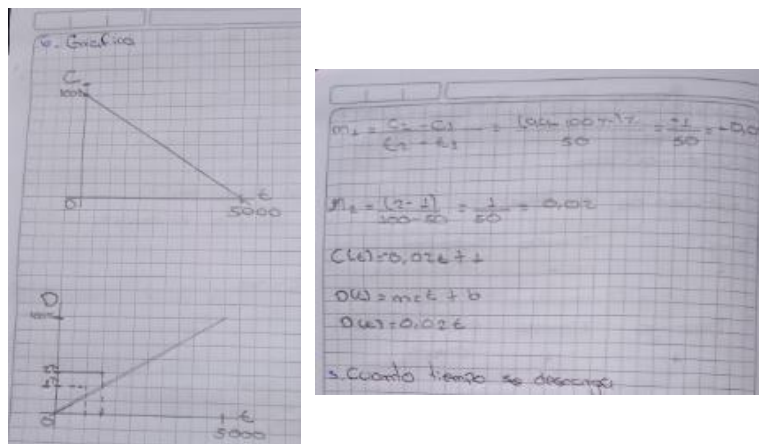 4. Grafica
C
100%
0
t
5000
D
100%
2%
1%
0
t
5000
m₁ = C₂ - C₁ / t₂ - t₁ = (99 - 100%)% / 50 = -1/50 = -0,0
m₂ = (2-1) / 100-50 = 1/50 = 0,02
C(t)=0,02t + 1
D(t) = m₂t + b
D(t)=0.02t
5. Cuanto tiempo se descarga